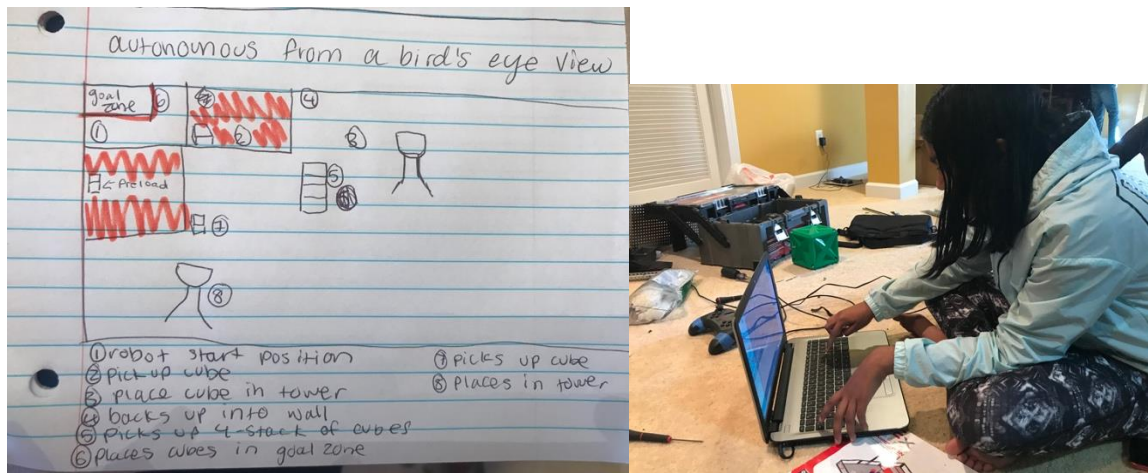 autonomous from a bird's eye view
goal zone
⑥
①
②
④
③
← Preload
⑤
⑦
⑧
① robot start position
② pick up cube
③ place cube in tower
④ backs up into wall
⑤ picks up 4-stack of cubes
⑥ places cubes in goal zone
⑦ picks up cube
⑧ places in tower